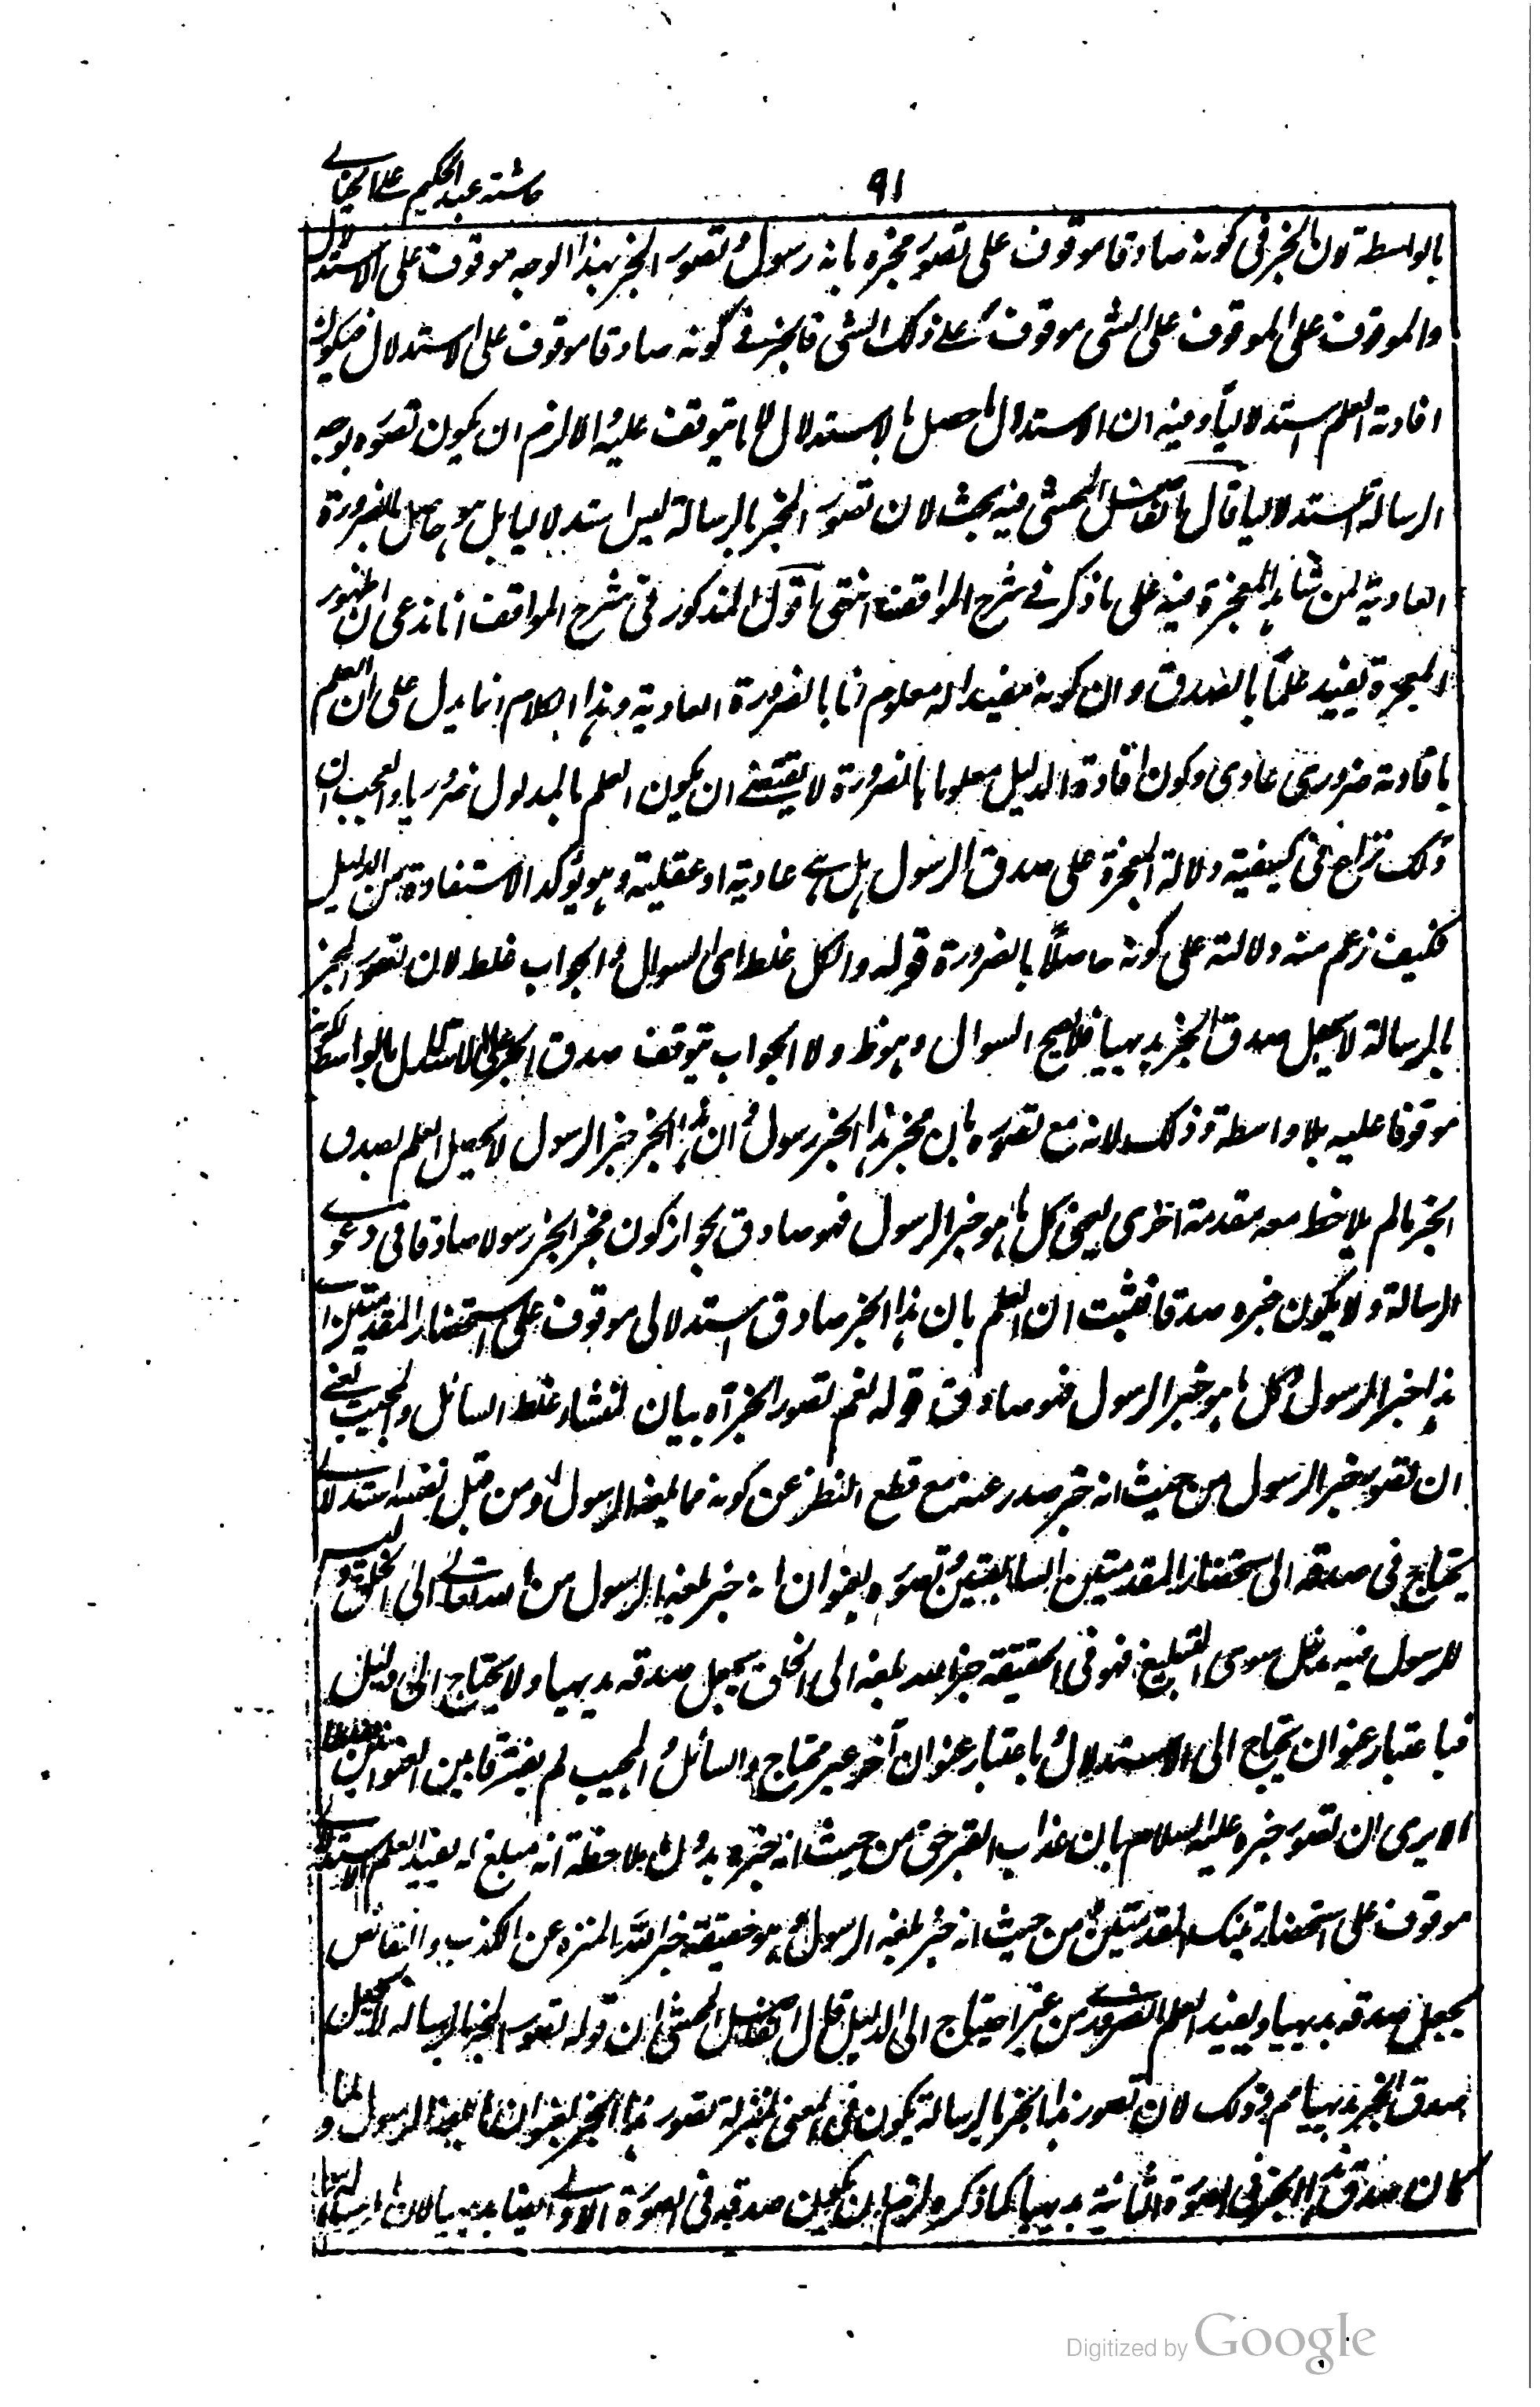 حاشية عبد الحكيم على الخيالي
٩١
بالواسطة لان الخبر في كونه صادقا موقوف على تصور مخبره بانه رسول و تصور المخبر بهذا الوجه موقوف على الاستدلال
والموقوف على الموقوف على الشي موقوف على ذلك الشي فالخبر في كونه صادقا موقوف على الاستدلال فيكون
افادته العلم استدلاليا وفيه ان الاستدلالي ما حصل بالاستدلال لا ما يتوقف عليه والا لزم ان يكون تصوره بوجه
الرسالة استدلاليا قال الفاضل المحشي فيه بحث لان تصور المخبر بالرسالة ليس استدلاليا بل هو حاصل بالضرورة
العادية لمن شاهد المعجزة منه على ما ذكر في شرح المواقف انتهى اقول المذكور في شرح المواقف انا ندعى ان ظهور
المعجزة يفيد علما بالصدق و ان كونه مفيدا له معلوم لنا بالضرورة العادية وهذا الكلام انما يدل على ان العلم
بافادته ضروري عادي وكون افادة الدليل معلوما بالضرورة لا يقتضي ان يكون العلم بالمدلول ضروريا والعجب ان
ذلك نزاع في كيفية دلالة المعجزة على صدق الرسول هل هي عادية او عقلية وهو يؤكد الاستفادة من الدليل
فكيف زعم منه دلالته على كونه حاصلا بالضرورة قوله والكل غلط اى السوال و الجواب غلط لان تصور المخبر
بالرسالة لا يجعل صدق الخبر بديهيا فلا يصح السوال وهو ظ ولا الجواب بتوقف صدق الخبر على الاستدلال بالواسطة لكونه
موقوفا عليه بلا واسطة وذلك لانه مع تصوره بان مخبر هذا الخبر رسول و ان هذا الخبر خبر الرسول لا يحصل العلم بصدق
الخبر مالم يلاحظ معه مقدمة اخرى اعني كل ما هو خبر الرسول فهو صادق لجواز كون مخبر الخبر رسولا صادقا في دعوى
الرسالة ولا يكون خبره صدقا فثبت ان العلم بان هذا الخبر صادق استدلالى موقوف على استحضار المقدمتين اى
هذا خبر الرسول و كل ما هو خبر الرسول فهو صادق قوله نعم تصور الخبر آه بيان لمنشاء غلط السائل والمجيب يعني
ان تصور خبر الرسول من حيث انه خبر صدر عنه مع قطع النظر عن كونه مما بلغه الرسول و من قبل نفسه استدلالي
يحتاج في صدقه الى استحضار المقدمتين السابقتين و تصوره بعنوان انه خبر بلغه الرسول من الله تعالى الى الخلق و ليس
للرسول فيه دخل سوى التبليغ فهو في الحقيقة خبر الله بلغه الى الخلق يجعل صدقه بديهيا ولا يحتاج الى دليل
فباعتبار عنوان يحتاج الى الاستدلال و باعتبار عنوان آخر غير محتاج والسائل و المجيب لم يفترقا بين العنوانين
الا يرى ان تصور خبره عليه السلام بان عذاب القبر حق من حيث انه خبره بدون ملاحظة انه مبلغ له يفيد العلم الاستدلالي
موقوف على استحضار تينك المقدمتين و من حيث انه خبر بلغه الرسول و هو حقيقة خبر الله المنزه عن الكذب والنقائص
يجعل صدقه بديهيا ويفيد العلم الضروري من غير احتياج الى الدليل قال الفاضل المحشي ان قوله تصور المخبر بالرسالة لا يجعل
صدق الخبر بديهيا مم وذلك لان تصور هذا الخبر بالرسالة يكون في المعنى بمنزلة تصور هذا الخبر بعنوان ما بلغه الرسول و
كان صدق هذا الخبر في الصورة الثانية بديهيا كما ذكره لزم ان يكون صدقه في الصورة الاولى ايضا بديهيا لان